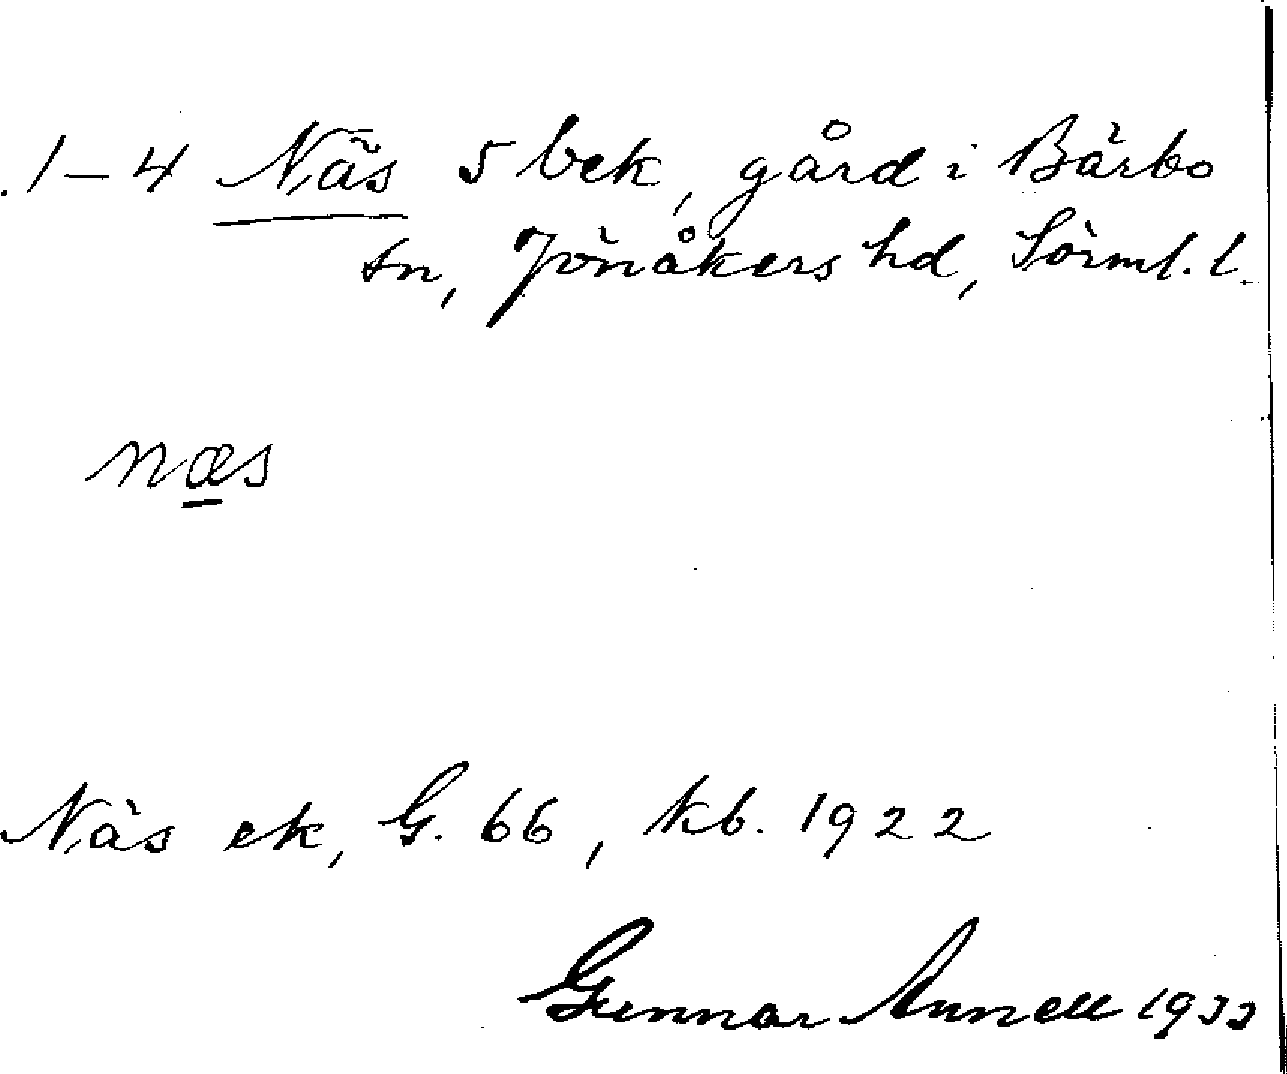 .1-4 Näs 5 bek, gård i Bärbo
sn, Jönåkers hd, Sörml. l.
næs
Näs ek, G. 66, kb. 1922
Gunnar Annell 1933